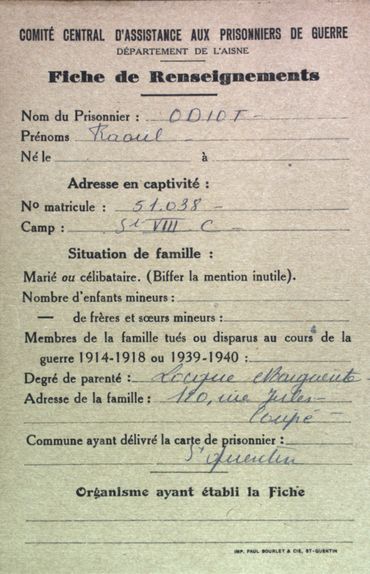 COMITÉ CENTRAL D'ASSISTANCE AUX PRISONNIERS DE GUERRE
DÉPARTEMENT DE L'AISNE
Fiche de Renseignements
Nom du Prisonnier : ODIOT
Prénoms Raoul
Né le à
Adresse en captivité :
No matricule : 51.038
Camp : St VIII C
Situation de famille :
Marié ou célibataire. (Biffer la mention inutile).
Nombre d'enfants mineurs :
— de frères et sœurs mineurs :
Membres de la famille tués ou disparus au cours de la
guerre 1914-1918 ou 1939-1940 :
Degré de parenté :
Adresse de la famille : 110, rue Jules
Coupé
Commune ayant délivré la carte de prisonnier :
St Quentin
Organisme ayant établi la Fiche
IMP. PAUL BOURLET & CIE, ST-QUENTIN